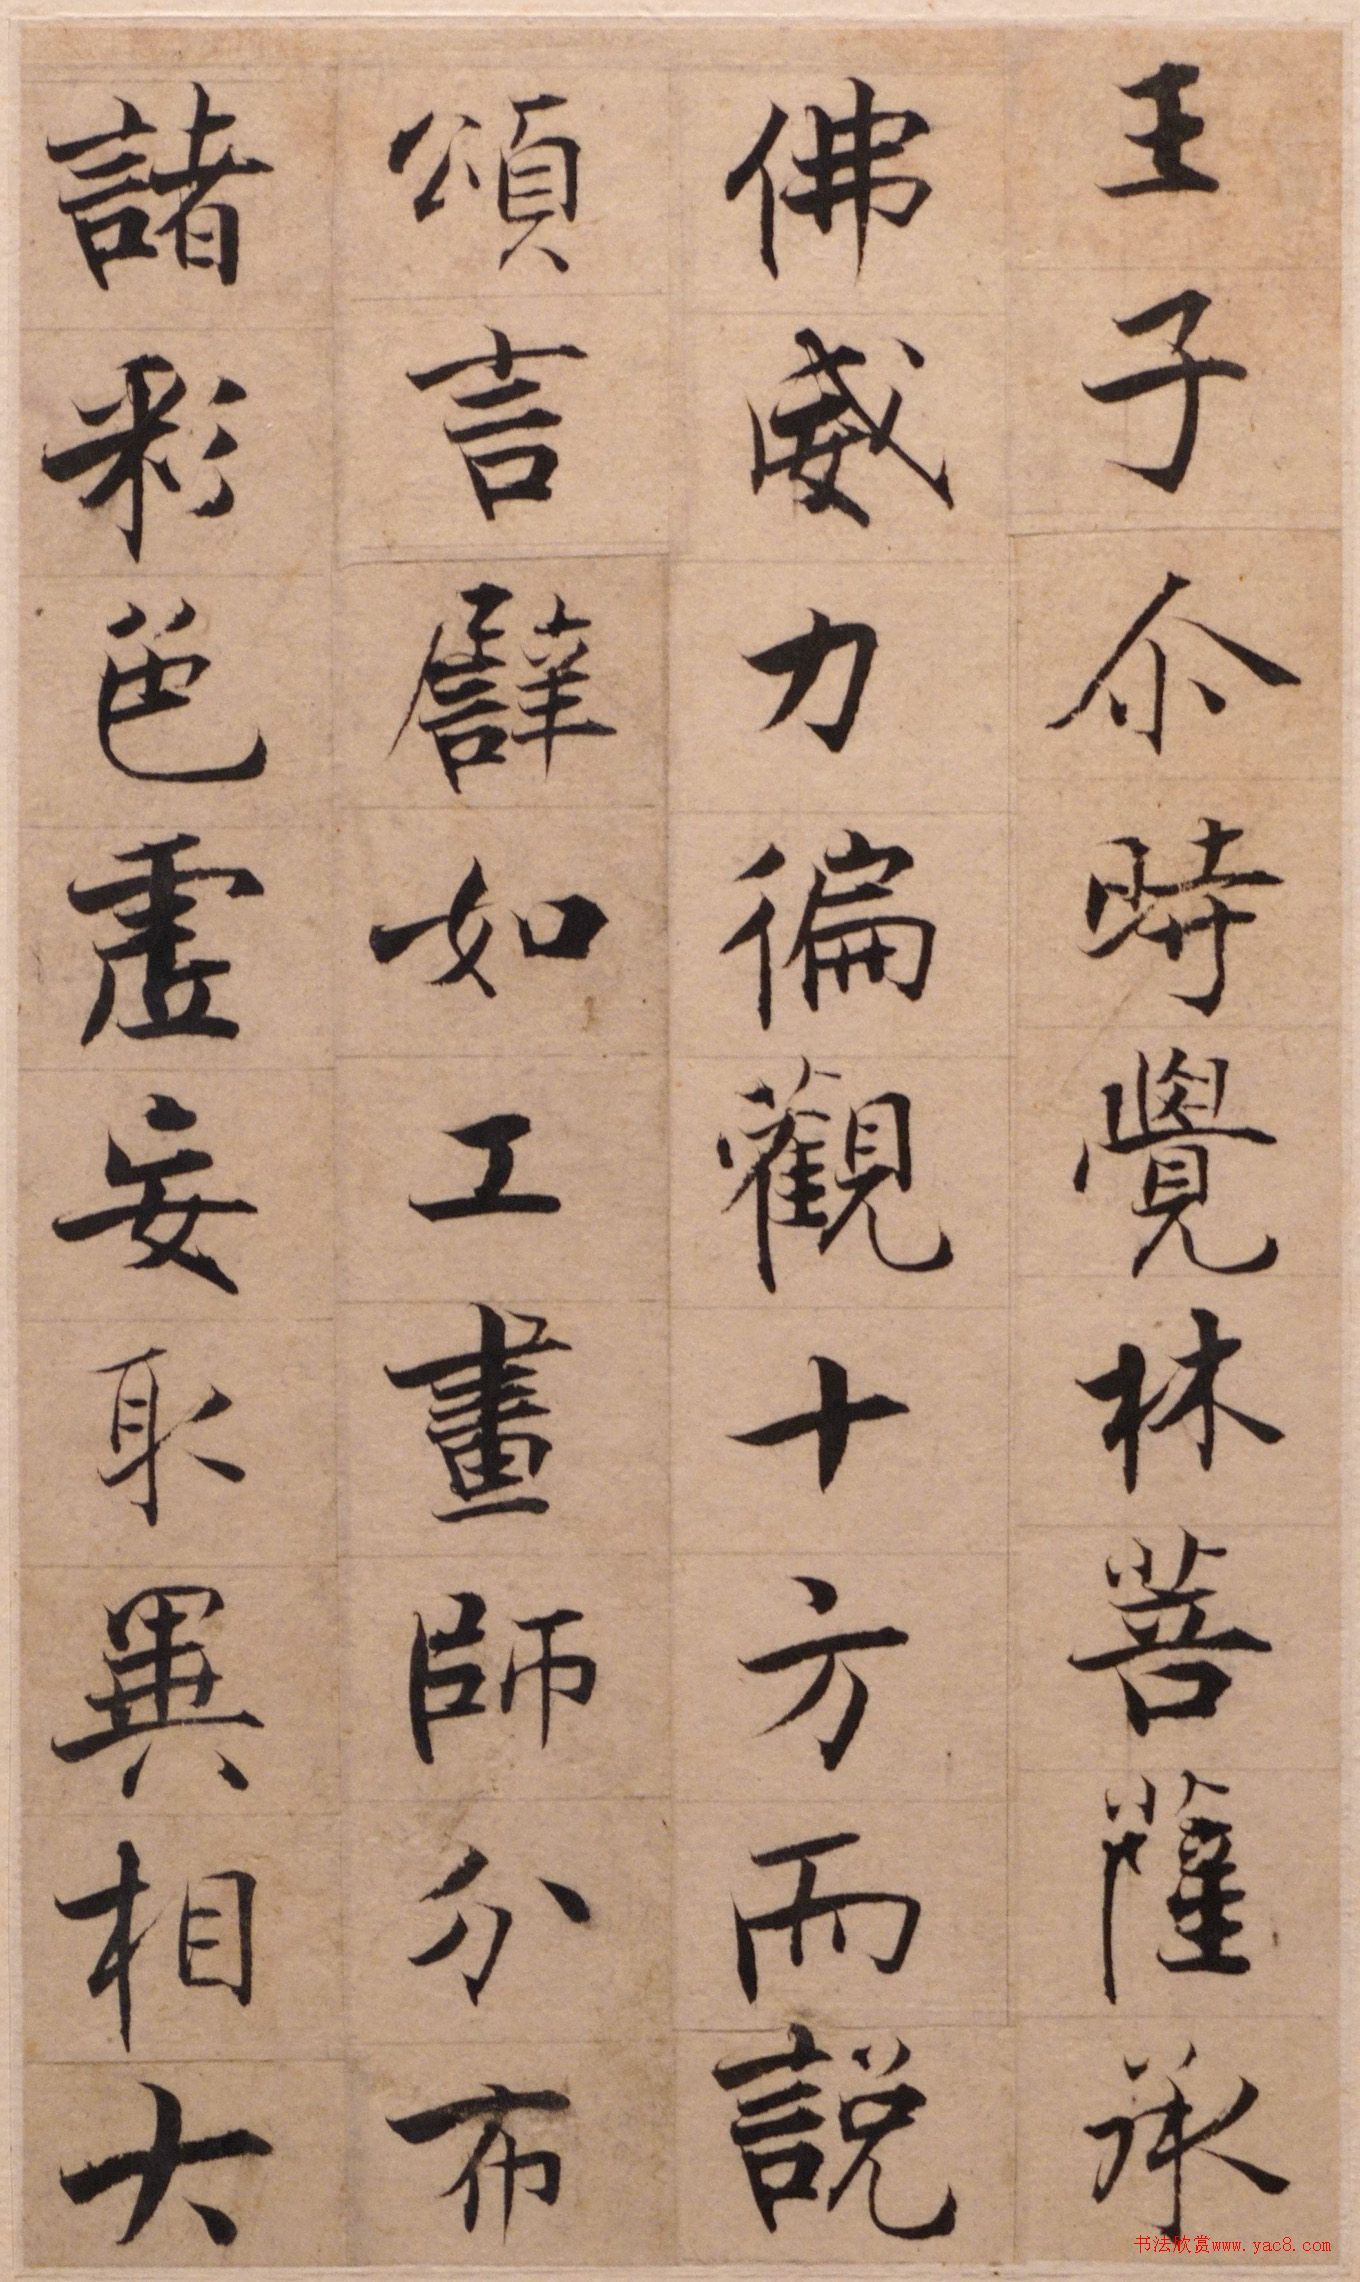 王子尒時覺林菩薩承
佛威力徧觀十方而說
頌言譬如工畫師分布
諸彩色虛妄取異相大
书法欣赏www.yac8.com